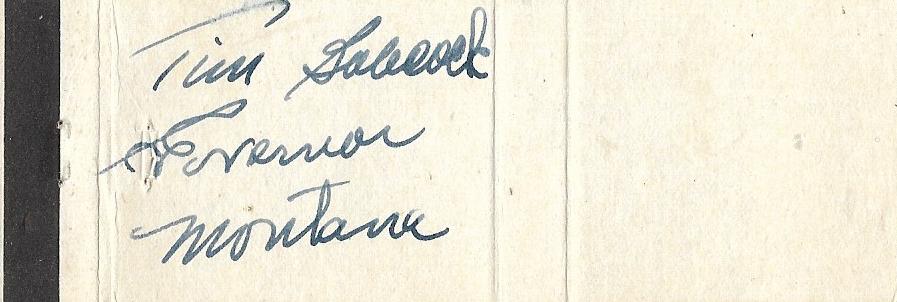 Tim Babcock
Governor
Montana